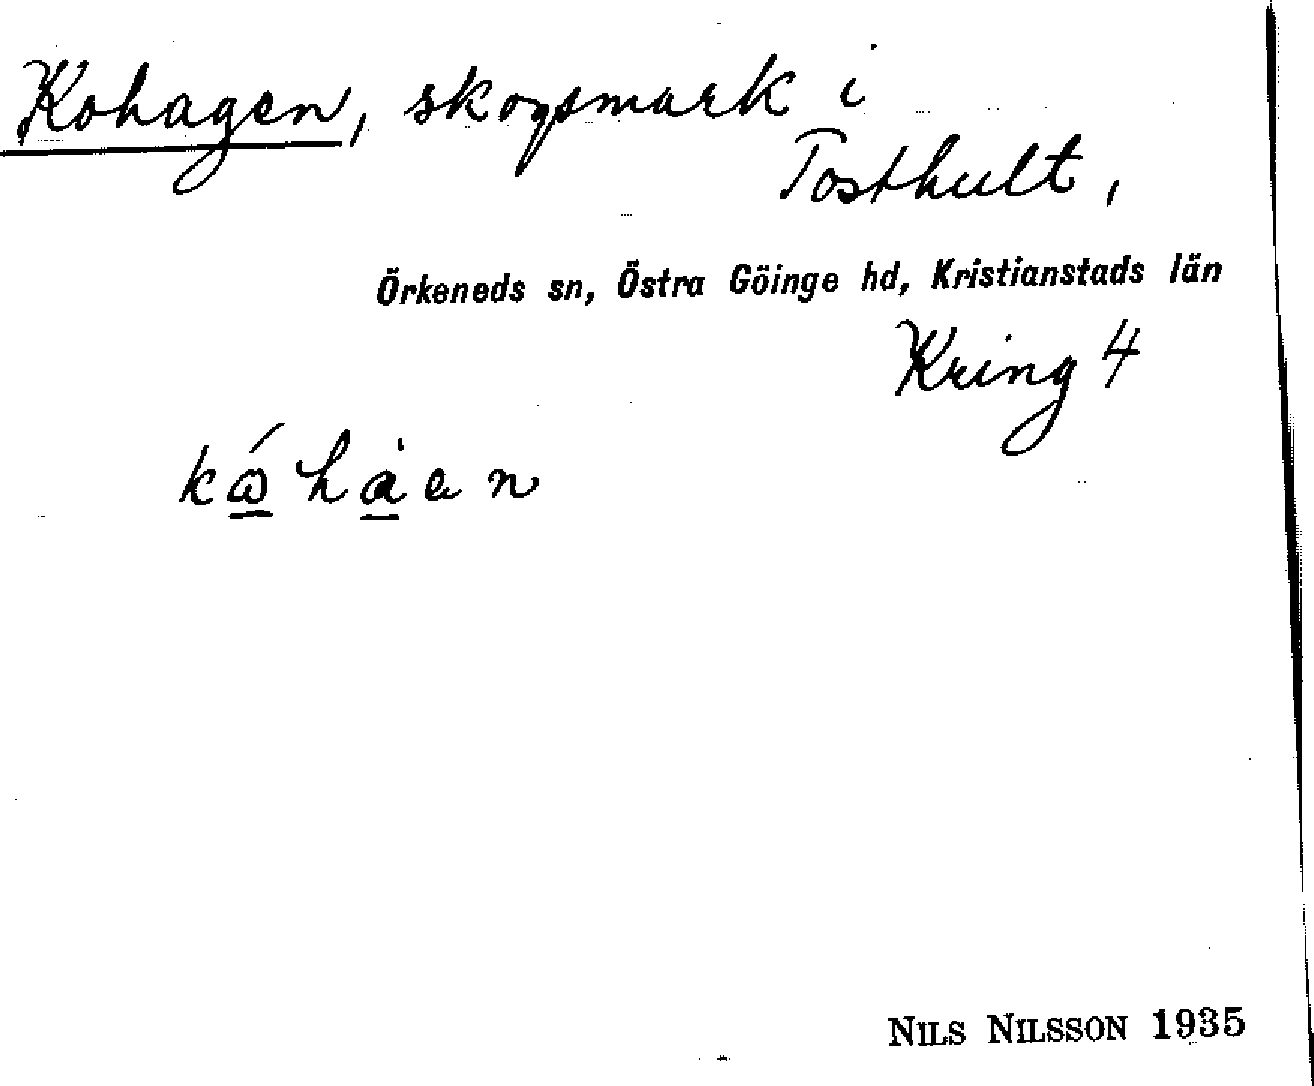 Kohagen, skogsmark i
Tosthult,
Örkeneds sn, Östra Göinge hd, Kristianstads län
Kring 4
NILS NILSSON 1935